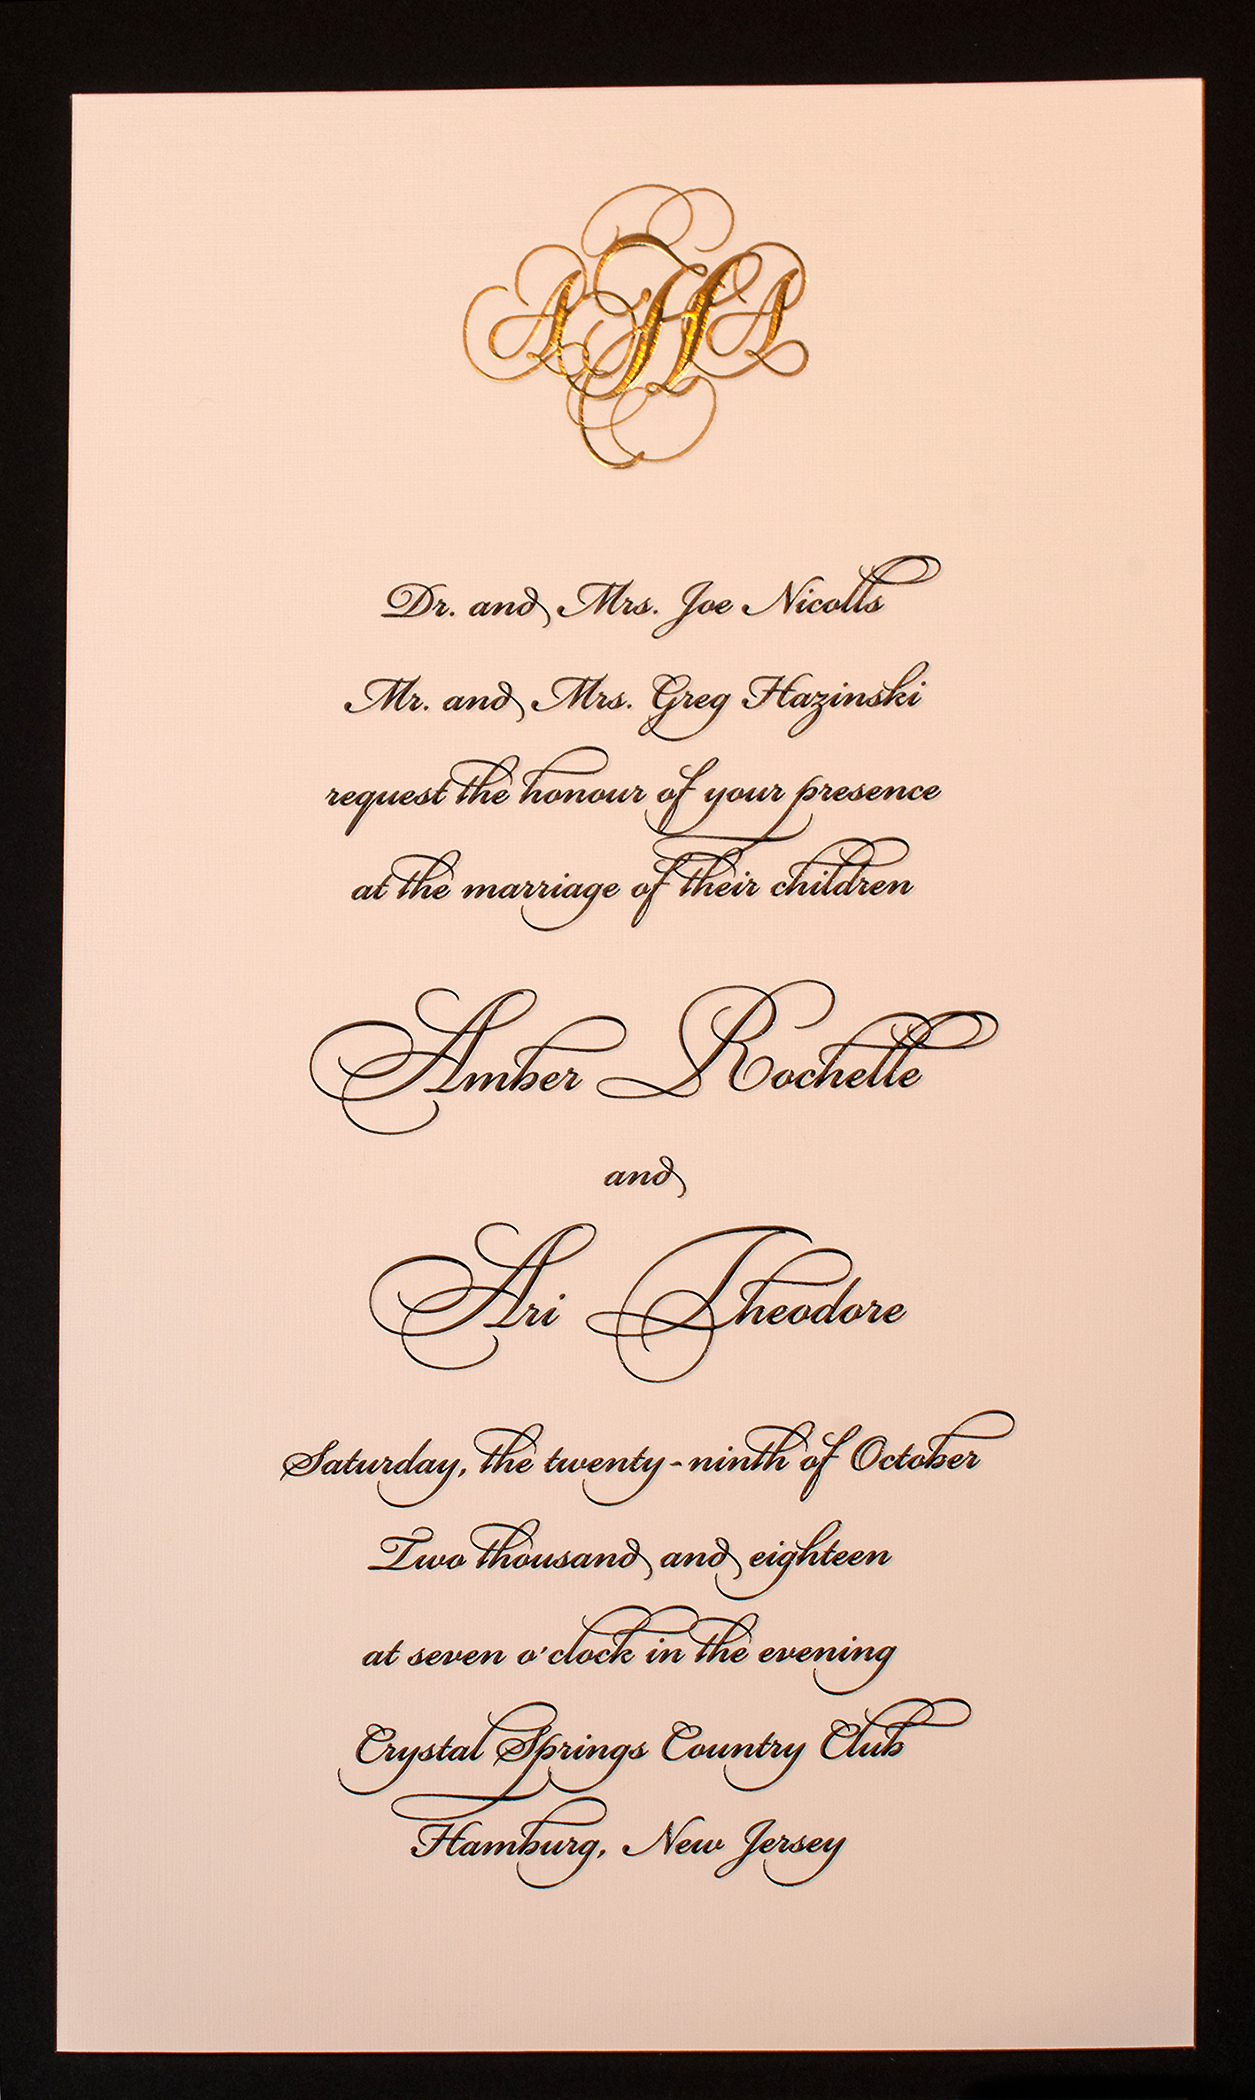 AHA
Dr. and Mrs. Joe Nicolls
Mr. and Mrs. Greg Hazinski
request the honour of your presence
at the marriage of their children
Amber Rochelle
and
Ari Theodore
Saturday, the twenty-ninth of October
Two thousand and eighteen
at seven o'clock in the evening
Crystal Springs Country Club
Hamburg, New Jersey